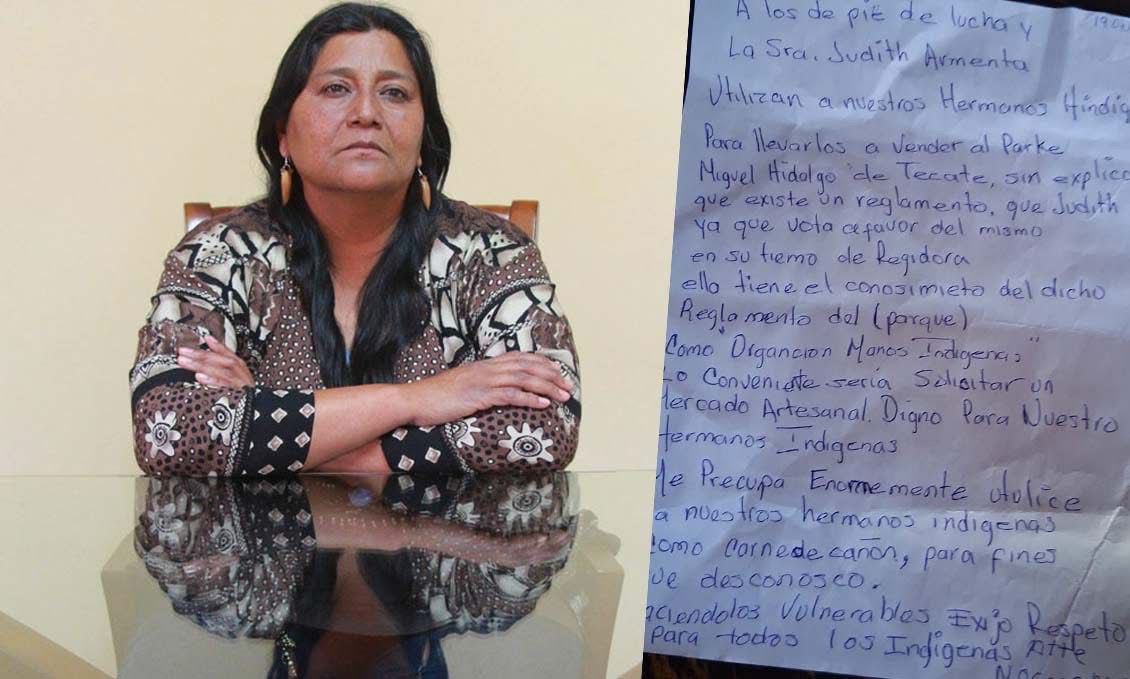 A los de piE de lucha y
La Sra. Judith Armenta
Utilizan a nuestros Hermanos Hindig
Para llevarlos a vender al Parke
Miguel Hidalgo de Tecate, sin explica
que existe un reglamento, que Judith
ya que vota afavor del mismo
en su tiemo de Regidora
ella tiene el conosimieto del dicho
Reglamento del (parque)
Como "Organcion Manos Indigenas"
Lo Conveniente seria Solicitar un
Mercado Artesanal. Digno Para Nuestro
Hermanos Indigenas
Me Precupa Enormemente utulice
a nuestros hermanos indigenas
como carnede cañon, para fines
ue desconosco.
aciendolos Vulnerables Exijo Respeto
Para todos los Indigenas Atte